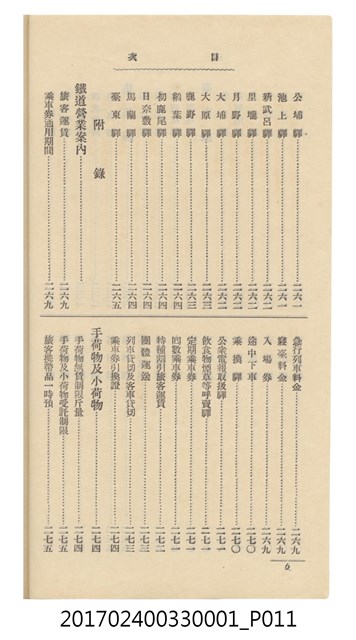 目次
公埔驛……二六一
池上驛……二六一
新武呂驛……二六一
里壠驛……二六二
月野驛……二六二
大埔驛……二六二
大原驛……二六三
鹿野驛……二六三
稻葉驛……二六四
初鹿尾驛……二六四
日奈敷驛……二六四
馬蘭驛……二六四
臺東驛……二六五
附錄
鐵道營業案內
旅客運賃……二六九
乘車券通用期間……二六九
急行列車料金……二六九
寢臺料金……二六九
入場券……二六九
途中下車……二七〇
乘換驛……二七〇
公衆電報取扱驛……二七一
飲食物煙草等呼賣驛……二七一
定期乘車券……二七一
回數乘車券……二七一
特種割引旅客運賃……二七二
團體運送……二七三
列車貸切及客車貸切……二七三
乘車券引換證……二七四
手荷物及小荷物……二七四
手荷物無賃制限斤量……二七四
手荷物及小荷物受託制限……二七五
旅客携帶品一時預……二七五
6
201702400330001_P011